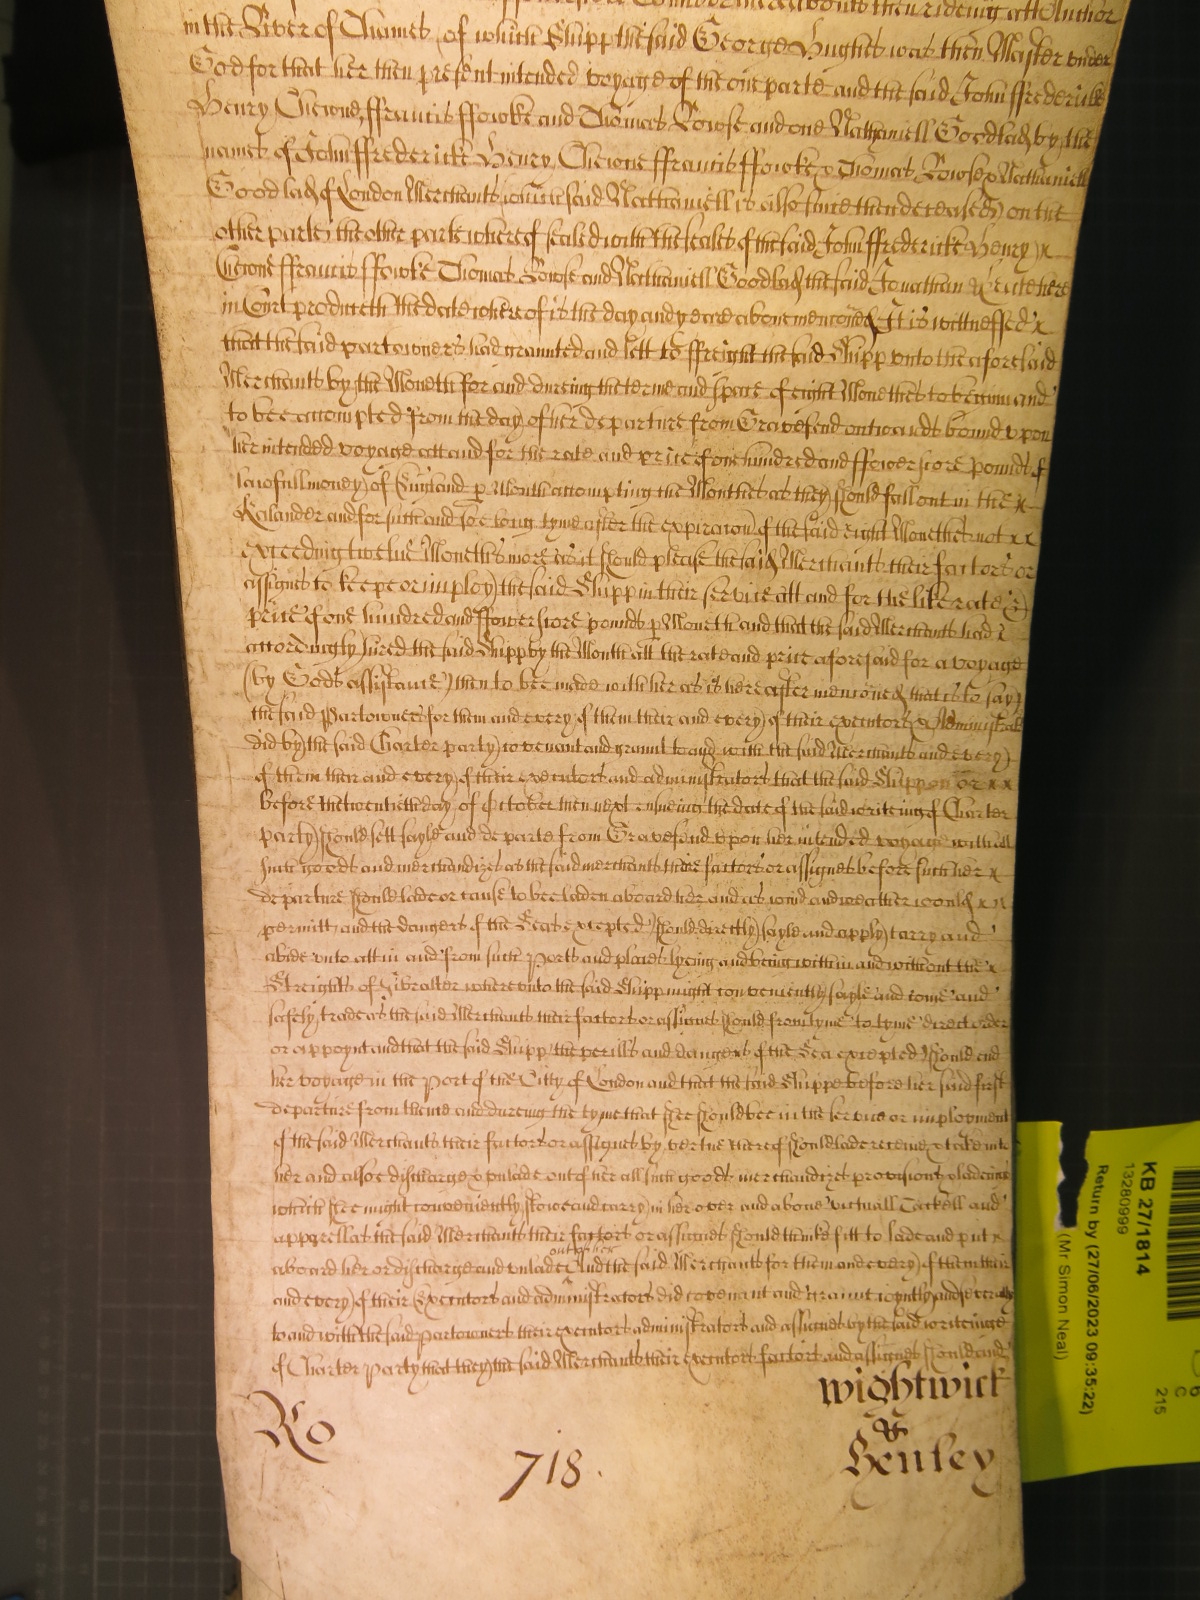 then rideing att Anchor
in the River of Thames, of which Shipp the said George Hughes was then Master under
God for that her then present intended voyage of the one parte and the said John ffredericke
Henry Cheione ffrancis ffowke and Thomas Rowse and one Nathaniell Goodlad by the
names of John ffredericke Henry Cheione ffrancis ffowke x Thomas Rowse x Nathaniell
Goodlad of London Merchants which said Nathaniell is alsoe since then deceased on the
other parte, the other parte whereof sealed with the seales of the said John ffredericke Henry x
Cheione ffrancis ffowke Thomas Rowse and Nathaniell Goodlad the said Jonathan here
in Court produceth the date whereof is the day and yeare above menconed It is wittnessed x
that the said partowners had graunted and lett to ffreight the said Shipp unto the aforesaid
Merchants by the Moneth for and dureing the terme and space of eight Monethes to beginn and
to bee accompted from the day of her departure from Gravesend outwards bound upon
her intended voyage att and for the rate and price of one hundred and ffower score pounds of
lawfull money of England p Month accompting the Monthes as they should fall out in the x
Kalander and for such and soe long tyme after the expiracon of the said eight Monethes not x x
exceeding twelve Moneths more as it should please the said Merchants their factors or
assignes to keepe or imploy the said Shipp in their service att and for the like rate &
price of one hundred and ffower score pounds p Moneth and that the said Merchants had x
accordingly hired the said Shipp by the Month att the rate and price aforesaid for a voyage
(by Gods assistance) then to bee made with her as is hereafter menconed that is to say
the said Partowners for them and every of them their and every of their executors x Administrat
did by the said Charter party covenant and graunt to and with the said Merchants and every
of them their and every of their executors and administrators that the said Shipp on or x x
before the twentieth day of October then next ensueing the date of the said writeing of Charter
party should sett sayle and departe from Gravesend upon her intended voyage with all
such goods and merchandizes as the said merchants their factors or assignes before such her x
departure should lade or cause to bee laden aboard her and as wind and weather would x x
permitt and the dangers of the Seas excepted should directly sayle and apply tarry and
abide unto att in and from such Ports and places lyeing and being within and without the x
Streights of Gibralter whereunto the said Shipp might conveniently sayle and come and
safely trade as the said Merchants their factors or assignes should from tyme to tyme direct order
or appoynt and that the said Shipp the perills and dangers of the Sea excepted should end
her voyage in the Port of the Citty of London and that the said Shippe before her said first
departure from thence and dureing the tyme that shee should bee in the service or imployment
of the said Merchants their factors or assignes by vertue thereof should lade receive x take into
her and alsoe discharge x unlade out of her all such goods merchandizes provisions x ladeing
which shee might conveniently stowe and carry in her over and above victuall Tackell and
apparell as the said Merchants their factors or assignes should thinke fitt to lade and put x
out of her
aboard her or discharge and unlade And the said Merchants for them and every of them their
and every of their Executors and administrators did covenant and graunt ioyntly and severally
to and with the said partowners their executors administrators and assignes by the said writeinge
of Charter Party that they the said Merchants their executors factors and assignes should and
wightwick
&
Henley
Ro
718.
KB 27/1814
13280999
Return by (27/06/2023 09:35:22)
(Mr Simon Neal)
C
215